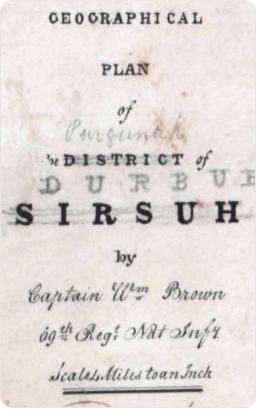 GEOGRAPHICAL
PLAN
of
Purgunah
he DISTRICT of
DURBUE
SIRSUH
by
Captain Wm Brown
69th Regt Nat Infy
Scale 4 Miles to an Inch